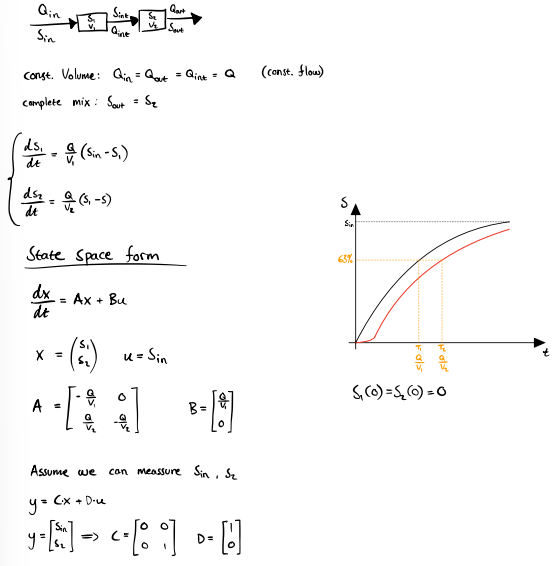 Q_in S_int Q_out
S_1 S_2
V_1 V_2
S_in Q_int S_out
const. Volume: Q_in = Q_out = Q_int = Q (const. flow)
complete mix: S_out = S_2
dS_1/dt = Q/V_1 (S_in - S_1)
dS_2/dt = Q/V_2 (S_1 - S)
State Space form
dx/dt = Ax + Bu
X = (S_1 S_2) u = S_in
A = [-Q/V_1 0; Q/V_2 -Q/V_2] B = [Q/V_1; 0]
Assume we can meassure S_in, S_2
y = C·x + D·u
y = [S_in; S_2] => C = [0 0; 0 1] D = [1; 0]
S
S_in
63%
t
Q/V_1 Q/V_2
S_1(0) = S_2(0) = 0